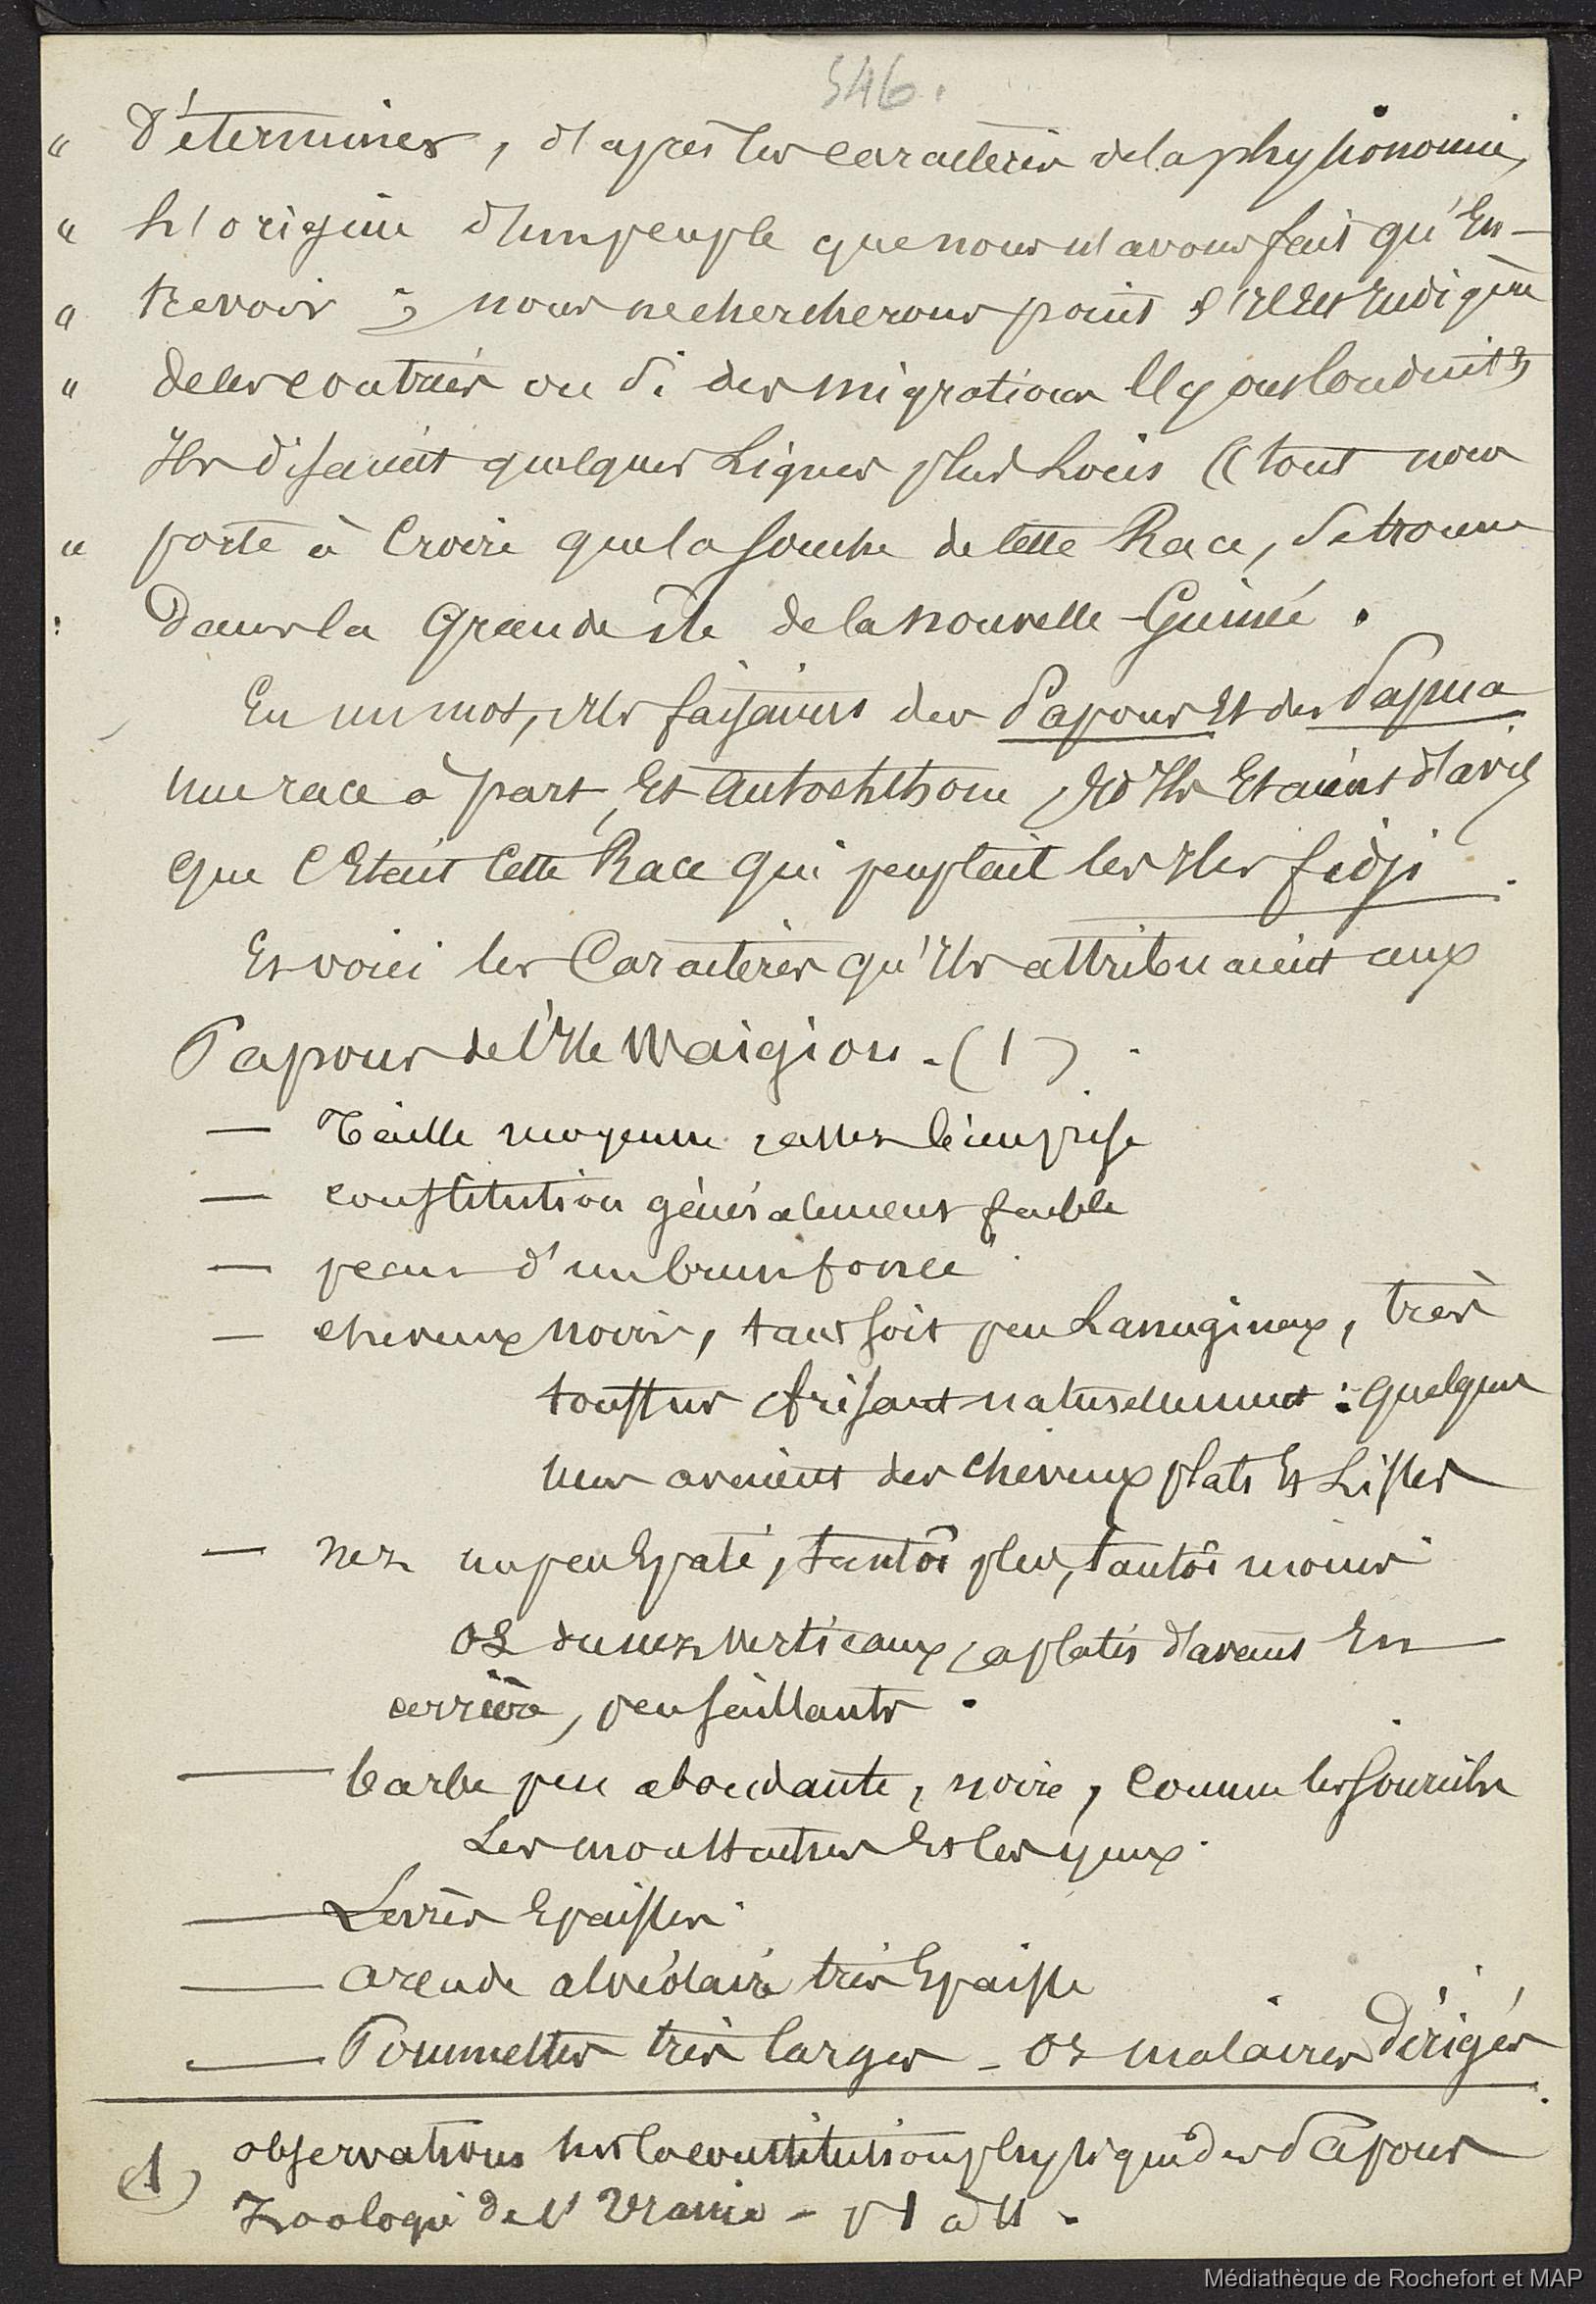 546.
" Déterminer, d'après les caractères de la physionomie,
" l'origine d'un peuple que nous n'avons fait qu'En-
" trevoir ; nous ne chercherons point s'il Est Indigène
" de ces contrées ou si des migrations l'y ont Conduit »
Ils disaient quelques Lignes plus Loin « tout nous
" porte à Croire que la souche de Cette Race, se trouve
: Dans la Grande île de la nouvelle-Guinée .
En un mot, Ils faisaient des Papous Et des Papua
une race à part, Et Autochthone, Et Ils Etaient d'avis
que C'Etait Cette Race qui peuplait les Iles fidji .
Et voici les Caractères qu'Ils attribuaient aux
Papous de l'Ile Waigiou - (1)
— Taille moyenne, assez bien prise
— constitution généralement faible
— peau d'un brun foncé
— cheveux noirs, tant soit peu Lanugineux, très
touffus frisant naturellement : quelques
uns avaient des cheveux plats Et Lisses
— nez un peu Epaté, tantôt plus, tantôt moins
os du nez verticaux, aplatis d'avant En
arrière, peu saillants .
— barbe peu abondante, noire, Comme les sourcils
Les moustaches Et les yeux
— Lèvres Epaisses
— arcade alvéolaire très Epaisse
— Pommettes très larges - os malaires Dirigés
(1) observations sur la constitution physique des Papous
Zoologie de l'Uranie - p 1 à 11 .
Médiathèque de Rochefort et MAP